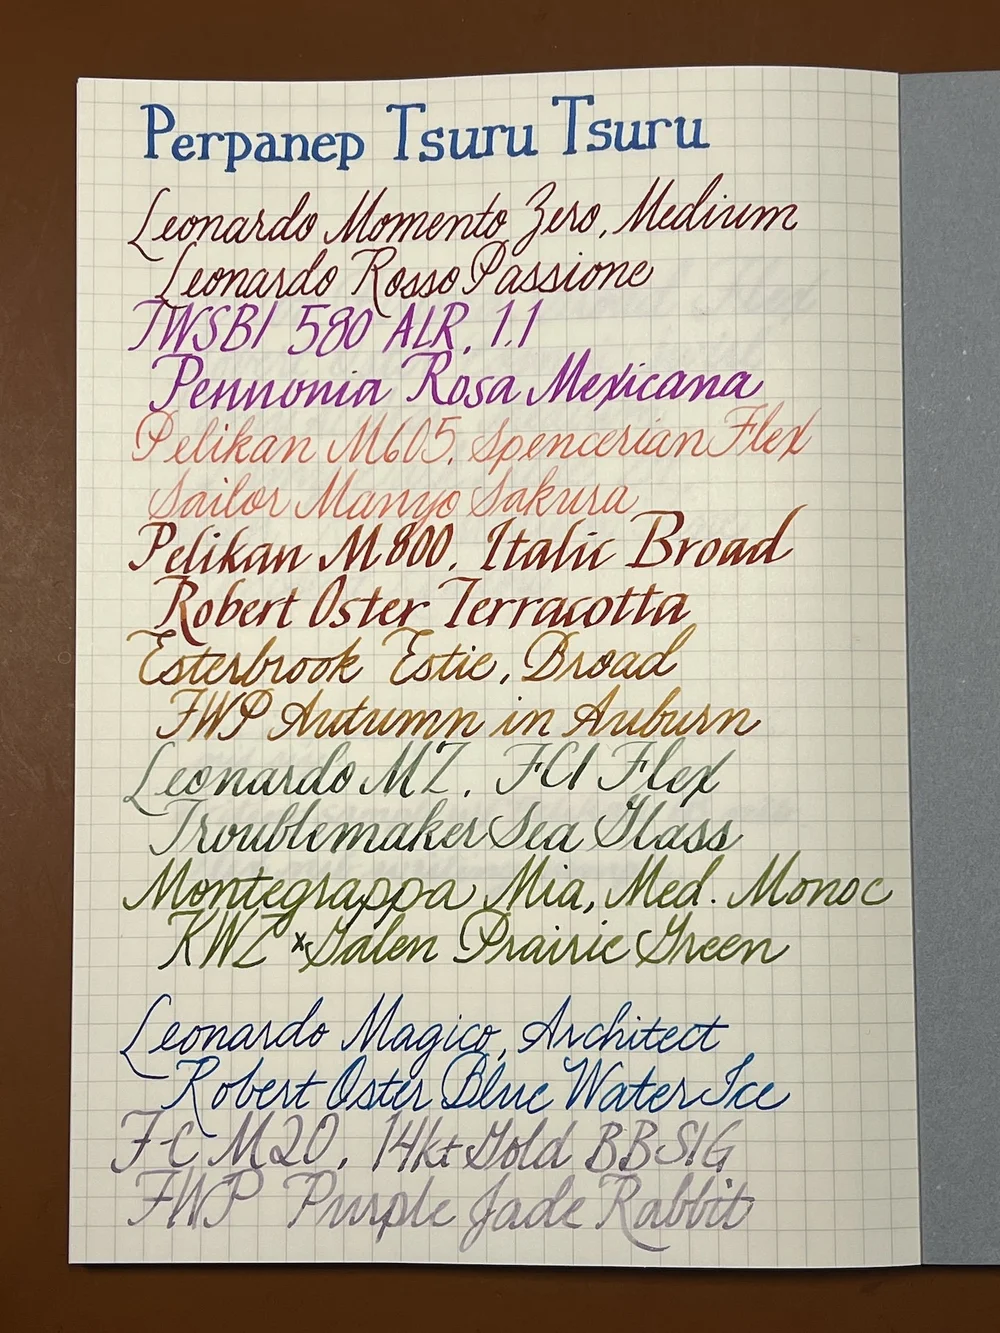 Perpanep Tsuru Tsuru
Leonardo Momento Zero, Medium
Leonardo Rosso Passione
TWSBI 580 ALR, 1.1
Pennonia Rosa Mexicana
Pelikan M605, Spencerian Flex
Sailor Manyo Sakura
Pelikan M800, Italic Broad
Robert Oster Terracotta
Esterbrook Estie, Broad
FWP Autumn in Auburn
Leonardo MZ, FCI Flex
Troublemaker Sea Glass
Montegrappa Mia, Med. Monoc
KWZ x Galen Prairie Green
Leonardo Magico, Architect
Robert Oster Blue Water Ice
F-C M20, 14kt Gold BBSIG
FWP Purple Jade Rabbit